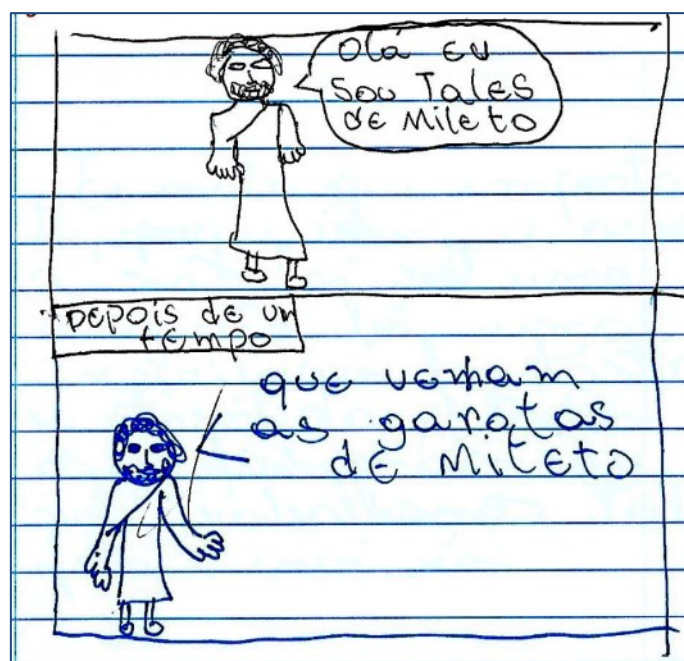 Olá eu
sou Tales
de Mileto
Depois de um
tempo
que venham
as garotas
de Mileto